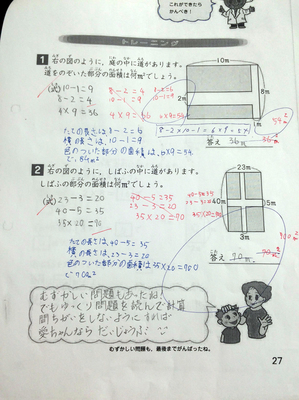 これができたら
かんぺき!
トレーニング
1 右の図のように、庭の中に道があります。
道をのぞいた部分の面積は何m²でしょう。
10m
8m
2m
1m
10-1=9
8-2=4
4×9=36
8-2=4
10-1=9
4×9=36
たての長さは、8-2=6
横の長さは、10-1=9
色のついた部分の面積は、6×9=54
答え 36m
54m²
2 右の図のように、しばふの中に道があります。
しばふの部分の面積は何m²でしょう。
23m
40m
5m
3m
23-3=20
40-5=35
35×20=70
40-5=35
23-3=20
35×20=70
たての長さは、40-5=35
横の長さは、23-3=20
色のついた部分の面積は35×20=700
で700m²
答え 70m²
700m²
むずかしい問題もあったね!
でもゆっくり問題を読んで計算
間ちがいをしないようにすれば
愛ちゃんなら だいじょうぶ!
むずかしい問題も、最後までがんばったね。
27